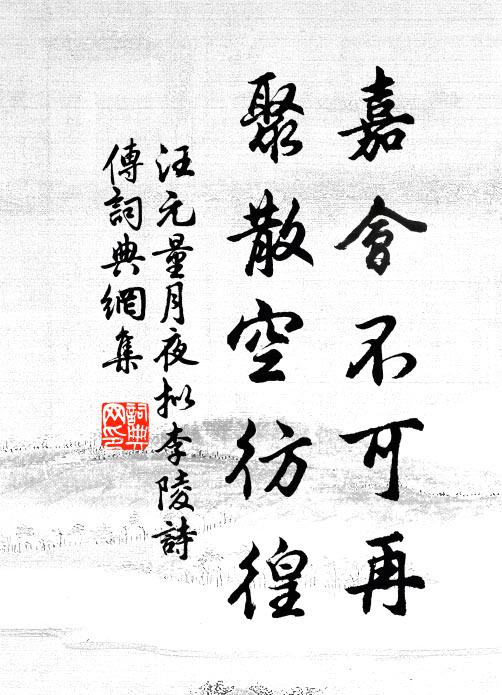 嘉會不可再
聚散空彷徨
汪元量月夜拟李陵詩
傳詞典網集
詞典网印